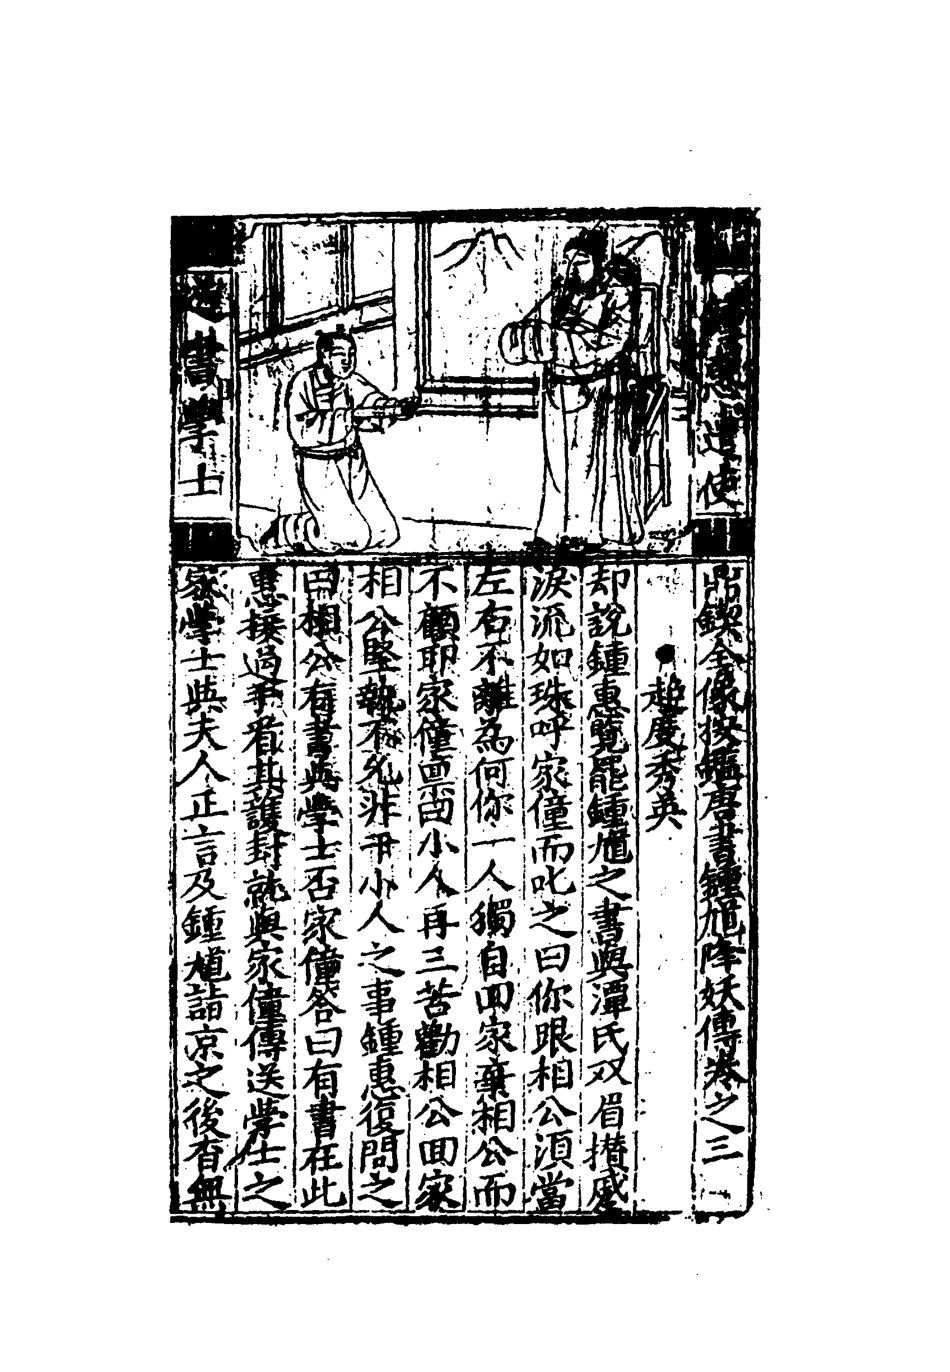 鍾惠遣使
遞書學士
鼎鍥全像按鑑唐書鍾馗降妖傳卷之三
超度秀英
却說鍾惠覽罷鍾馗之書與潭氏双眉攅蹙
淚流如珠呼家僮而叱之曰你跟相公湏當
左右不離為何你一人獨自回家棄相公而
不顧耶家僮禀曰小人再三苦勸相公回家
相公堅執不允非干小人之事鍾惠復問之
曰相公有書與學士否家僮答曰有書在此
惠接過手看其護封就與家僮傳送學士之
家學士與夫人正言及鍾馗詣京之後杳無